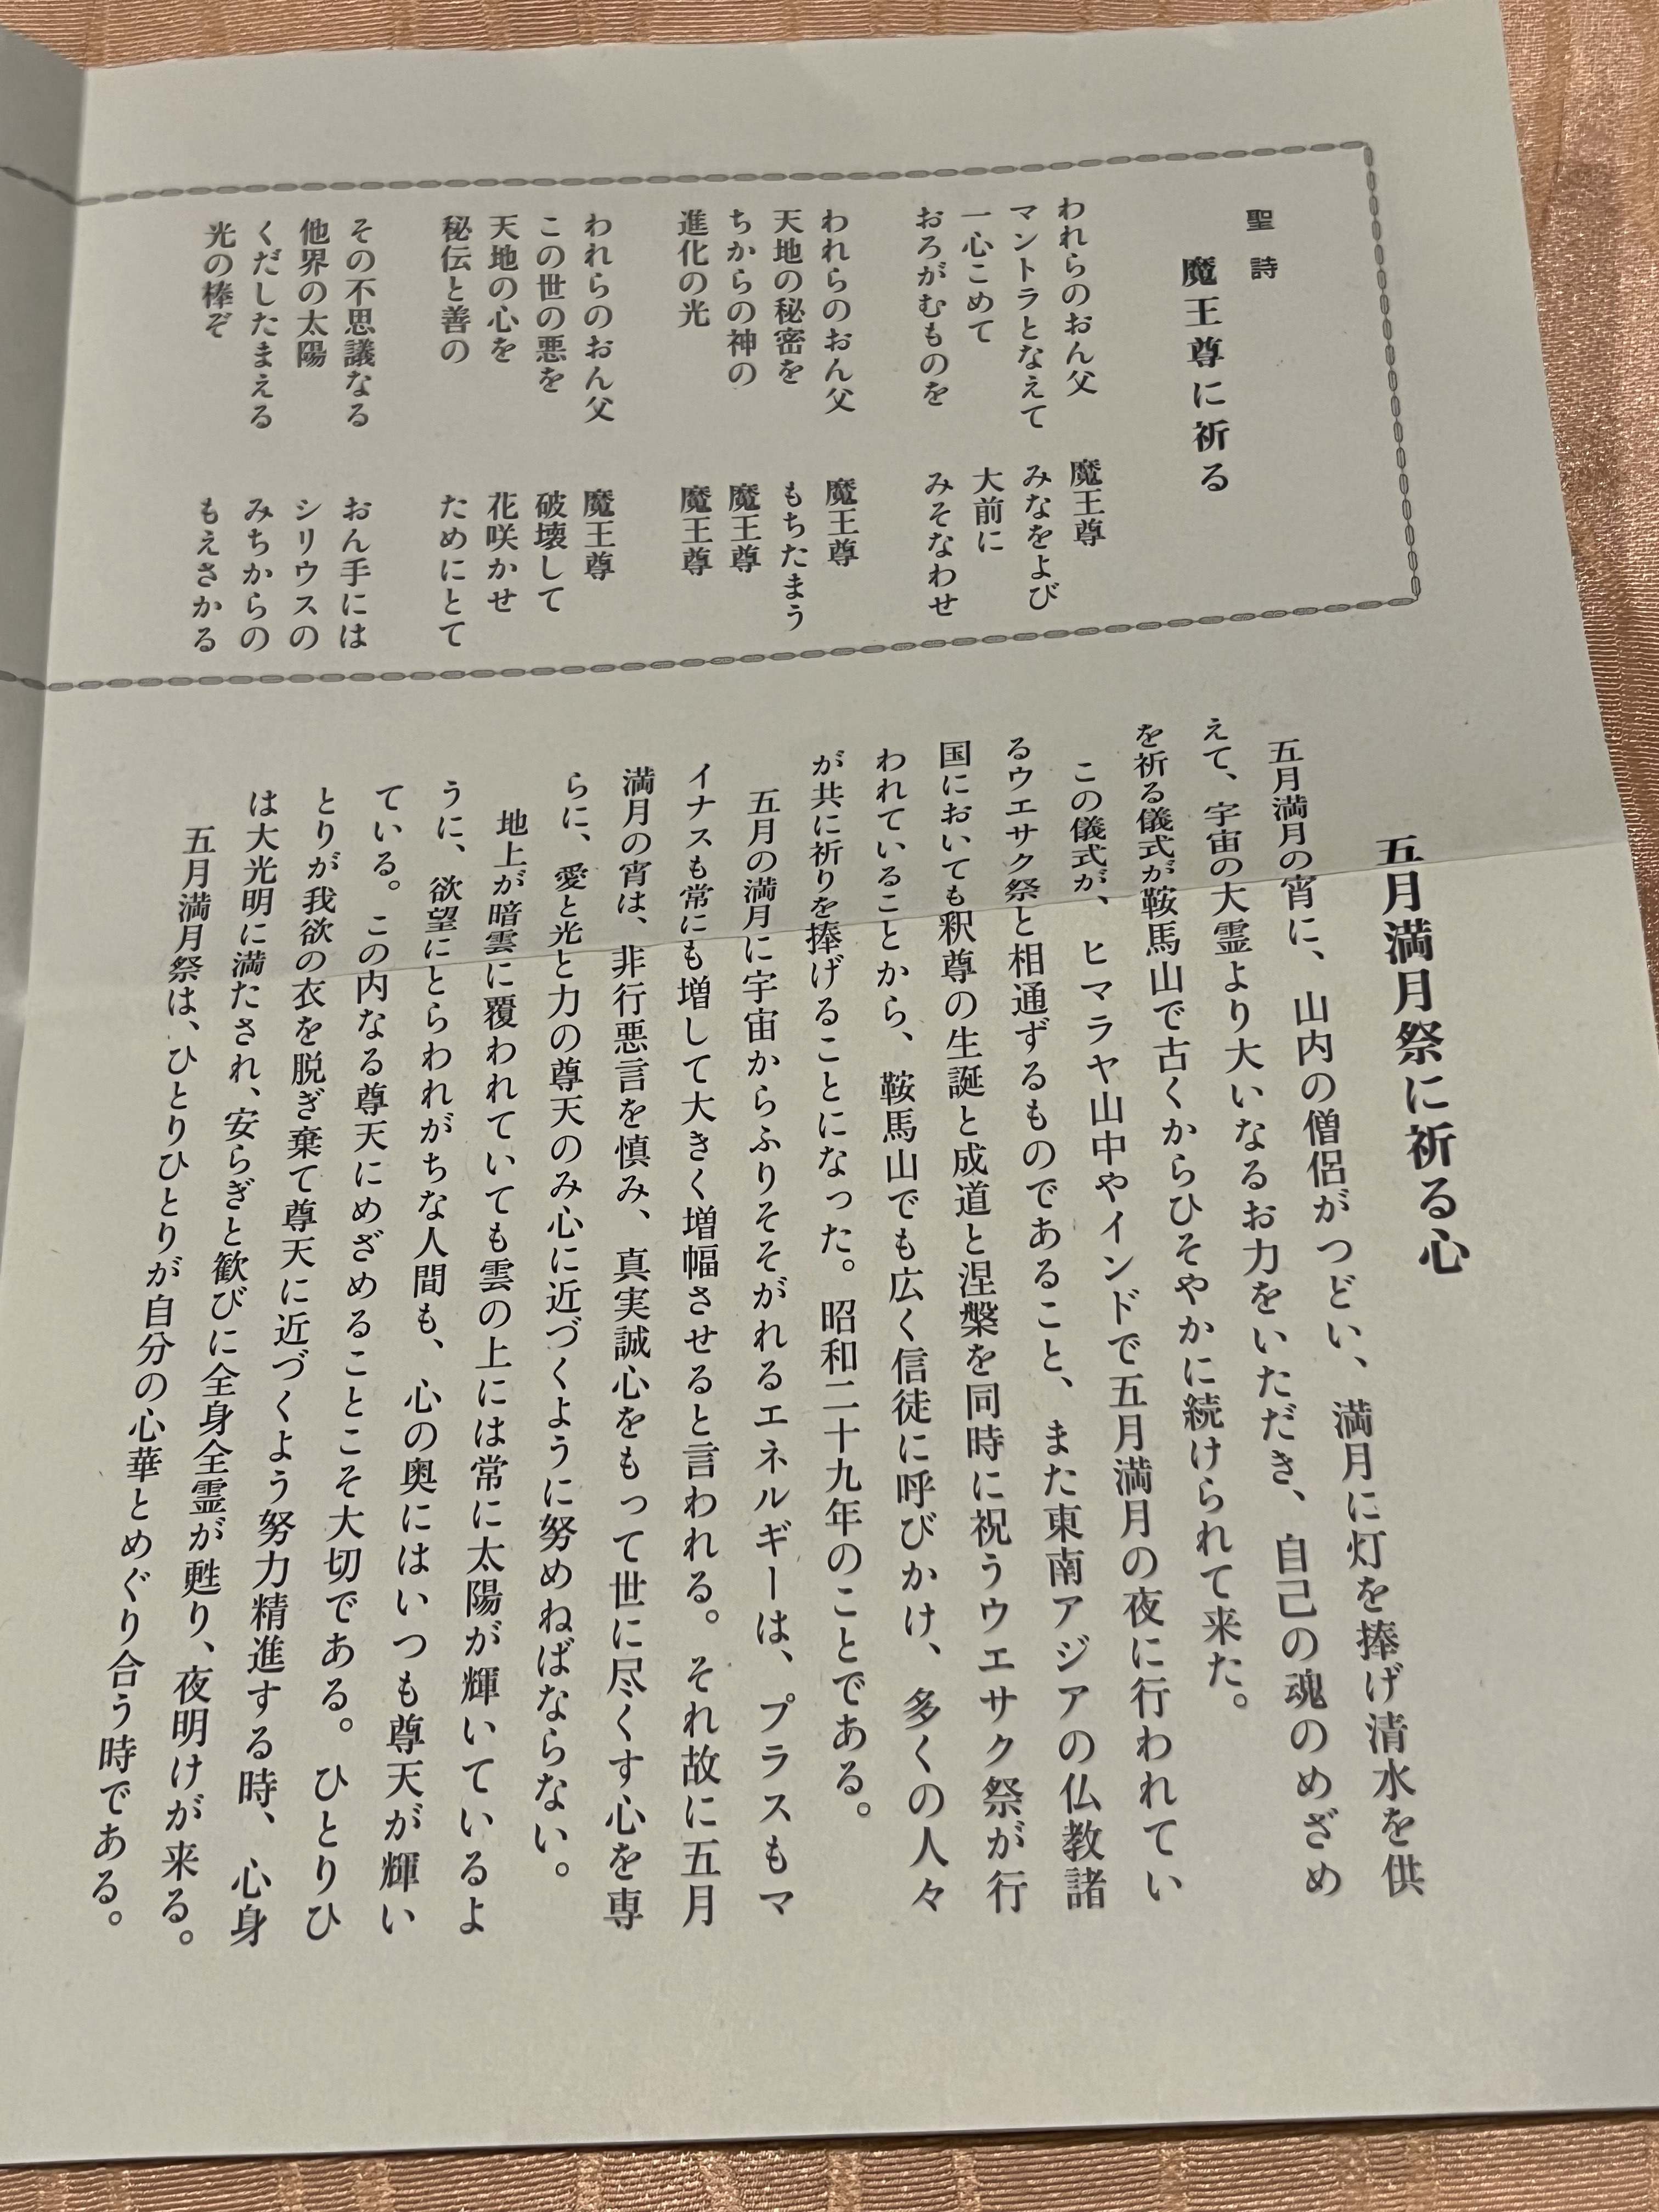 聖詩
魔王尊に祈る
われらのおん父　魔王尊
マントラとなえて　みなをよび
一心こめて　大前に
おろがむものを　みそなわせ
われらのおん父　魔王尊
天地の秘密を　もちたまう
ちからの神の　魔王尊
進化の光　魔王尊
われらのおん父　魔王尊
この世の悪を　破壊して
天地の心を　花咲かせ
秘伝と善の　ためにとて
その不思議なる　おん手には
他界の太陽　シリウスの
くだしたまえる　みちからの
光の棒ぞ　もえさかる
五月満月祭に祈る心
五月満月の宵に、山内の僧侶がつどい、満月に灯を捧げ清水を供
えて、宇宙の大霊より大いなるお力をいただき、自己の魂のめざめ
を祈る儀式が鞍馬山で古くからひそやかに続けられて来た。
この儀式が、ヒマラヤ山中やインドで五月満月の夜に行われてい
るウエサク祭と相通ずるものであること、また東南アジアの仏教諸
国においても釈尊の生誕と成道と涅槃を同時に祝うウエサク祭が行
われていることから、鞍馬山でも広く信徒に呼びかけ、多くの人々
が共に祈りを捧げることになった。昭和二十九年のことである。
五月の満月に宇宙からふりそそがれるエネルギーは、プラスもマ
イナスも常にも増して大きく増幅させると言われる。それ故に五月
満月の宵は、非行悪言を慎み、真実誠心をもって世に尽くす心を専
らに、愛と光と力の尊天のみ心に近づくように努めねばならない。
地上が暗雲に覆われていても雲の上には常に太陽が輝いているよ
うに、欲望にとらわれがちな人間も、心の奥にはいつも尊天が輝い
ている。この内なる尊天にめざめることこそ大切である。ひとりひ
とりが我欲の衣を脱ぎ棄て尊天に近づくよう努力精進する時、心身
は大光明に満たされ、安らぎと歓びに全身全霊が甦り、夜明けが来る。
五月満月祭は、ひとりひとりが自分の心華とめぐり合う時である。